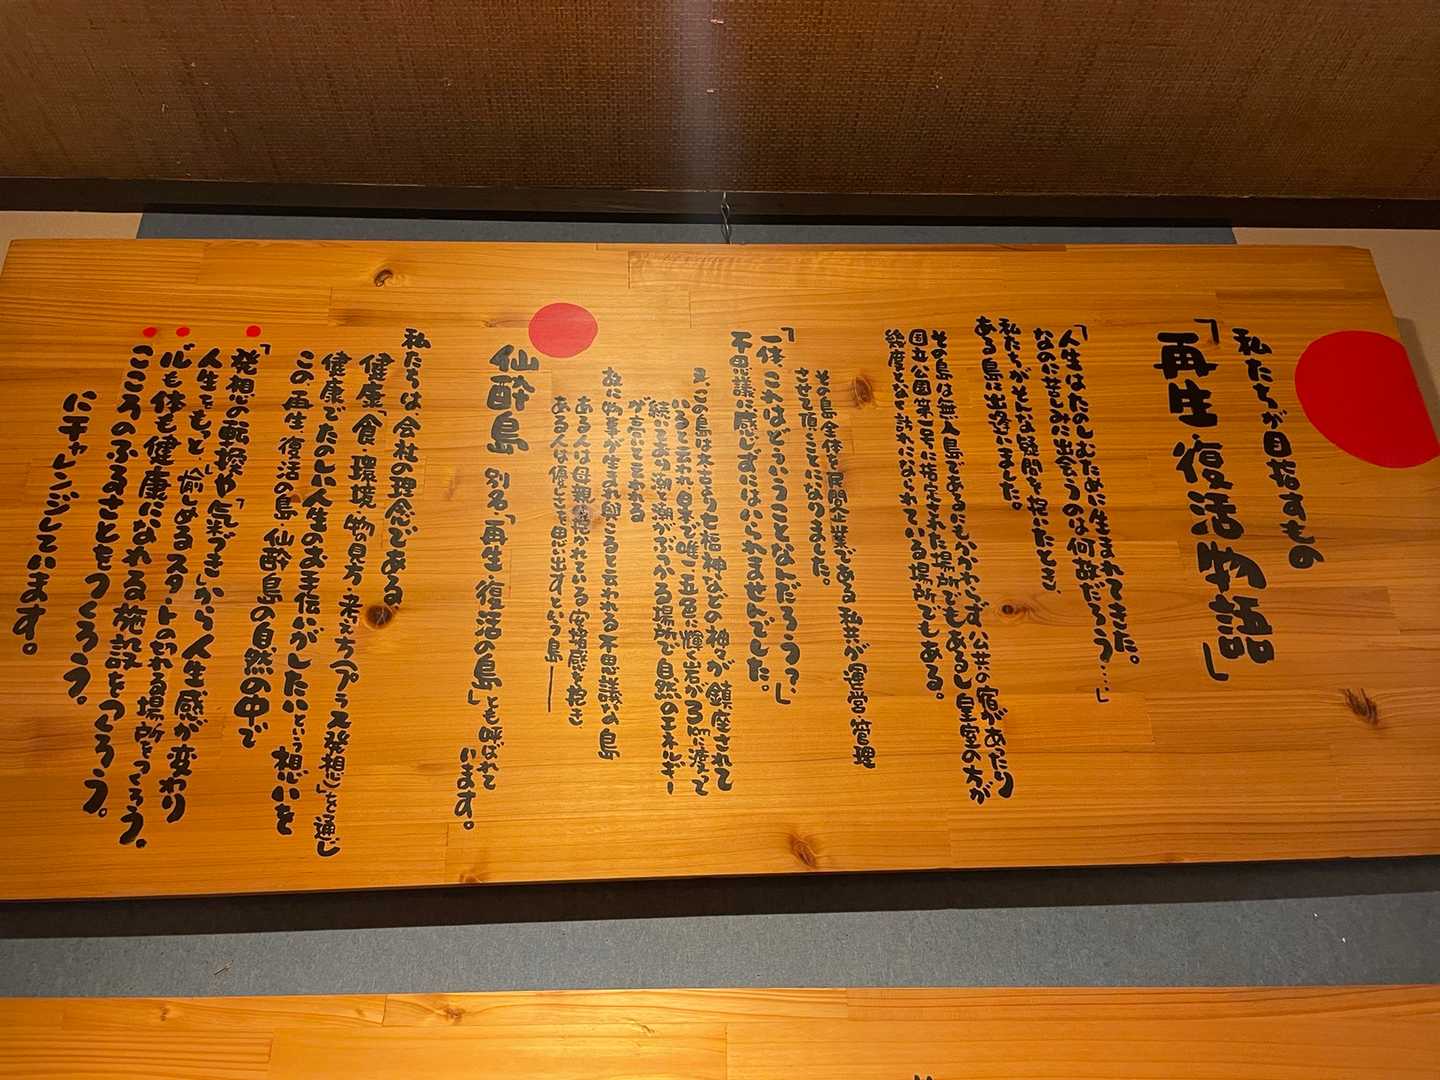 私たちが目指すもの
「再生・復活物語」
「人生はたのしむために生まれてきた。
なのに苦しみに出会うのは何故だろう・・・」
私たちがそんな疑問を抱いたとき、
ある島に出逢いました。
その島は無人島であるにもかかわらず公共の宿があったり
国立公園第一号に指定された場所でもあるし皇室の方が
幾度となく訪れになられている場所でもある。
その島全体を民間企業である私共が運営・管理
させて頂くことになりました。
「一体、これはどういうことなんだろうっ?」
不思議に感じずにはいられませんでした。
又、この島は太古より七福神などの神々が鎮座されて
いると云われ、日本で唯一五色に輝く岩が1kmに渡って
続いており潮と潮がぶつかる場所で自然のエネルギー
が高いと云われる
故に物事が生まれ興こると云われる不思議な島
ある人は母親に抱かれている安堵感を抱き
ある人は優しさを思い出すという島――
仙酔島 別名「再生・復活の島」とも呼ばれて
います。
私たちは会社の理念である
健康「食・環境・物の見方・考え方(プラス発想)」を通じ
健康でたのしい人生のお手伝いがしたいという想いを
この、再生・復活の島 仙酔島の自然の中で
「発想の転換」や「気づき」から人生感が変わり
人生をもっと愉しめるスタートの切れる場所をつくろう。
心も体も健康になれる施設をつくろう。
こころのふるさとをつくろう。
にチャレンジしています。